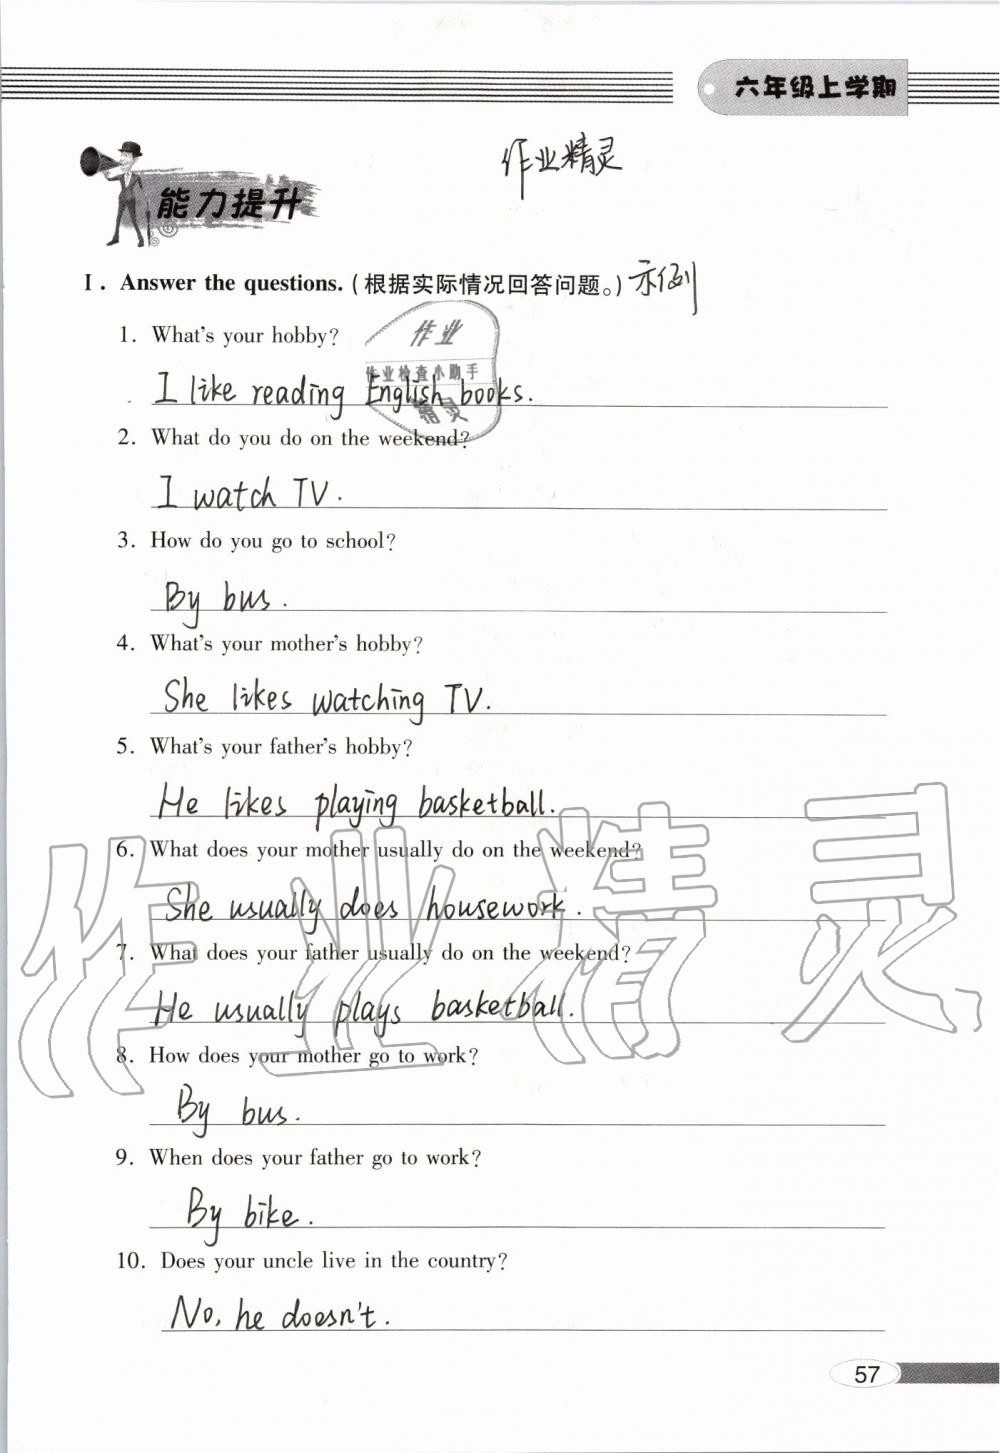 六年级上学期
作业精灵
能力提升
I. Answer the questions. (根据实际情况回答问题。) 示例
1. What's your hobby?
作业
作业检查小助手
精灵
I like reading English books.
2. What do you do on the weekend?
I watch TV.
3. How do you go to school?
By bus.
4. What's your mother's hobby?
She likes watching TV.
5. What's your father's hobby?
He likes playing basketball.
6. What does your mother usually do on the weekend?
She usually does housework.
7. What does your father usually do on the weekend?
He usually plays basketball.
作业精灵
8. How does your mother go to work?
By bus.
9. When does your father go to work?
By bike.
10. Does your uncle live in the country?
No, he doesn't.
57